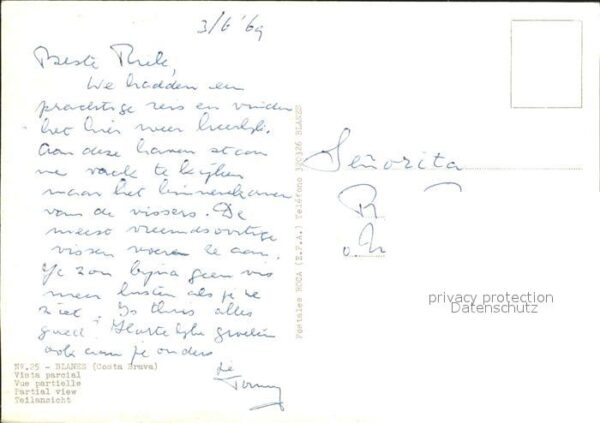 3/6 '69
Beste Riek,
We hadden een
prachtige reis en vinden
het hier weer heerlijk.
Aan deze haven staan
we vaak te kijken
naar het binnenkomen
van de vissers. De
meest vreemdsoortige
vissen voeren ze aan.
Je zou bijna geen vis
meer lusten als je ze
ziet. Is thuis alles
goed? Hartelijke groeten
ook aan je ouders
Nº.25 - BLANES (Costa Brava)
Vista parcial
Vue partielle
Partial view
Teilansicht
Postales ROCA (E.F.A.) Teléfono BLANES
Señorita
R
privacy protection
Datenschutz